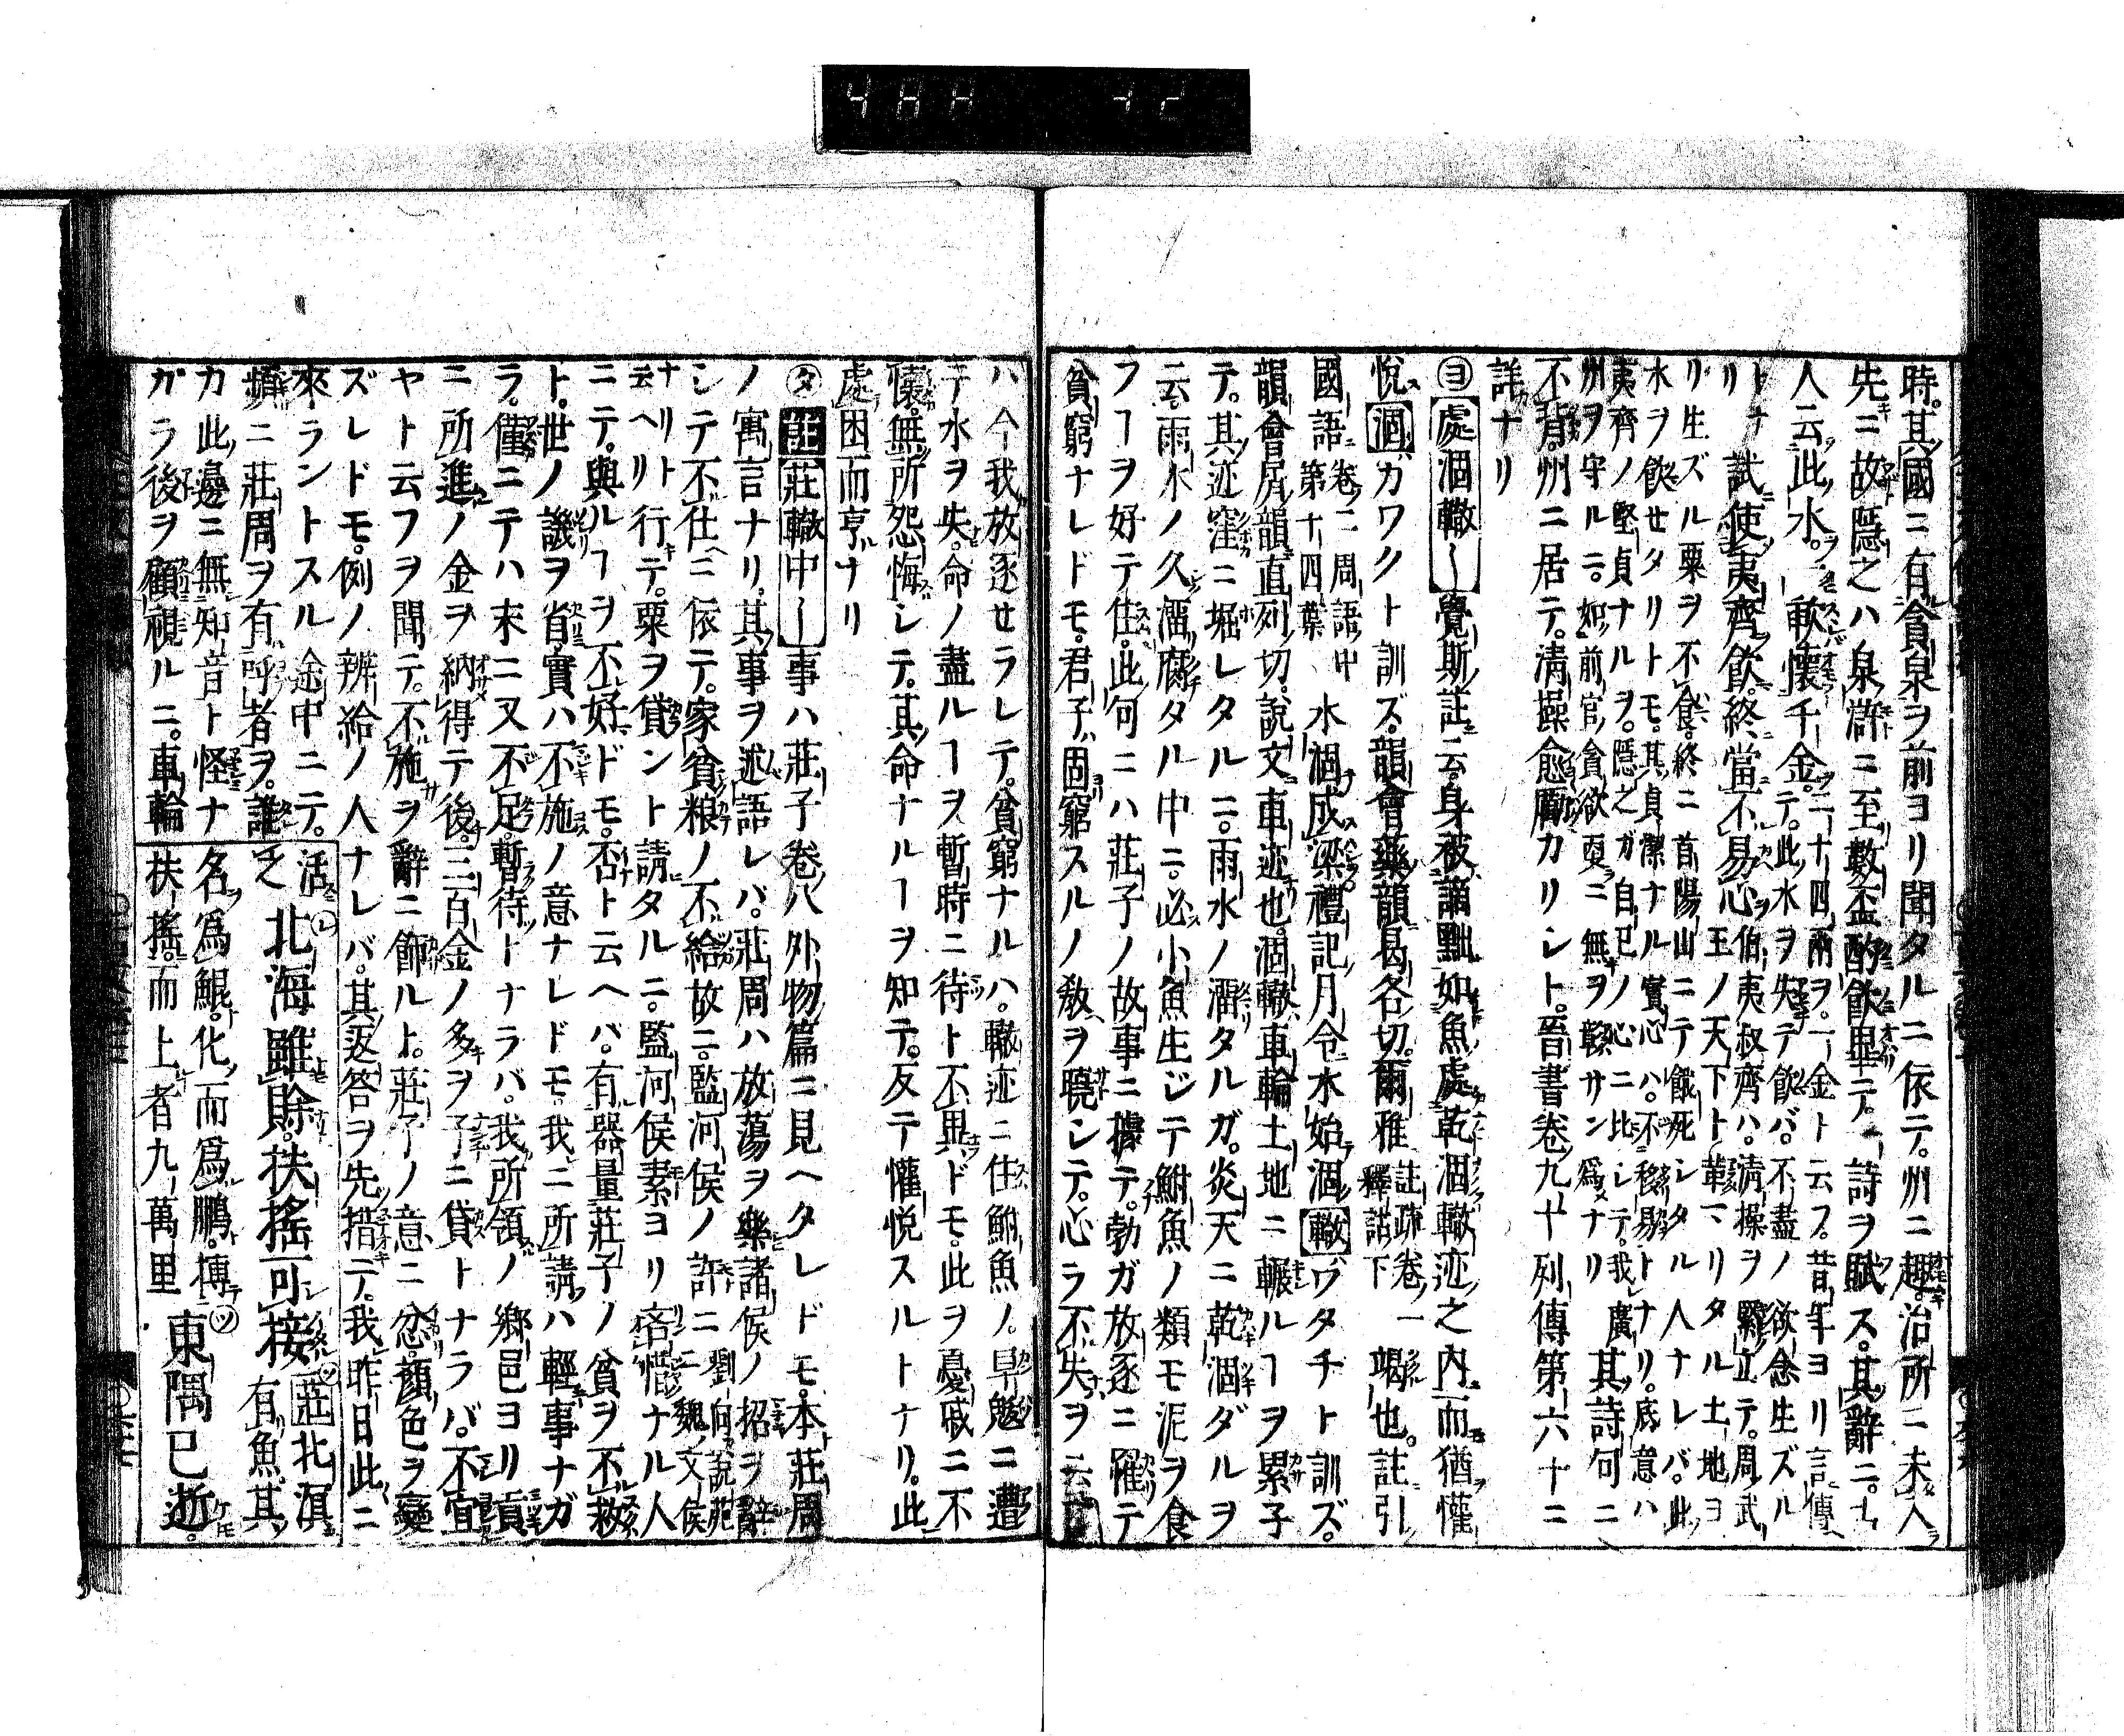 時其國ニ有貪泉ヲ前ヨリ聞タルニ依テ。州ニ趣治所ニ未入
先ニ故隱之ハ泉滸ニ至數盃酌飲畢テ。詩ヲ賦ス。其辭ニ。古
人云此水。一軟懷千金。二十四兩ヲ。一金ト云フ。昔年ヨリ言傳
テ。此水ヲ失テ飲バ。不盡ノ欲念生ズル
トナリ 試使夷齊飲。終當不易心 伯夷叔齊ハ。清操ヲ 立テ。周武
王ノ天下ト革 リタル土地ヨ
リ生ズル粟ヲ不食。終ニ首陽山ニテ餓死シタル人ナレバ。此
水ヲ飲セタリトモ。其貞潔ナル實心ハ。不移易トナリ。底意ハ
夷齊ノ堅貞ナルヲ。隱之ガ自己ノ心ニ比シテ。我廣
州ヲ守ルニ。如前官貪欲 ニ無ヲ サン爲ナリ 其詩句ニ
不背。州ニ居テ。清操愈厲カリシト。晉書卷九十列傳第六十二
詳ナリ
ヨ 處涸轍〜 覺斯註云。身被謫黜如魚處乾涸轍迹之内而猶懽
悅 涸 カワクト訓ズ。韻會藥韻曷各切。爾雅 註疏卷一 釋詁下 竭也。註引
國語 卷二周語中 第十四葉 水涸成梁禮記月令水始涸 轍 ワタチト訓ズ。
韻會屑韻直列切。説文車迹也。涸轍車輪土地ニ輾ルヿヲ累子
テ。其迹窪ニ堀レタルニ。雨水ノ溜タルガ。炎天ニ乾涸ダルヲ
云。雨水ノ久溜腐タル中ニ。必小魚生ジテ鮒魚ノ類モ泥ヲ食
フヿヲ好テ住。此何ニハ莊子ノ故事ニ據テ。勃ガ放逐ニ罹テ
貧窮ナレドモ。君子固窮スルノ敎ヲ曉シテ。心ラ不失ヲ云
ハ今我放逐セラレテ。貧窮ナルハ。轍迹ニ住鮒魚ノ。旱魃ニ遭
テ水ヲ失。命ノ盡ルヿヲ暫時ニ待ト不異ドモ。此ヲ憂戚ニ不
懷。無所怨悔シテ。其命ナルヿヲ知テ。反テ懽悅スルトナリ。此
處困而亨ナリ
タ 莊 莊轍中〜 事ハ莊子卷八外物篇ニ見ヘタレドモ。本莊周
ノ寓言ナリ。其事ヲ述語レバ。莊周ハ放蕩ヲ樂諸侯ノ招ヲ辭
シテ不仕ニ依テ。家貧粮ノ不給故ニ。監河侯ノ許ニ 劉向説苑 ニ魏文侯
ナリト 云ヘリ 行テ。粟ヲ貸ント請タルニ。監河侯素ヨリ吝惜ナル人
ニテ。與ルヿヲ不好ドモ。否ト云ヘバ。有器量莊子ノ貧ヲ不救
ト。世ノ譏ヲ省。實ハ不施ノ意ナレドモ。我ニ所請ハ輕事ナガ
ラ。僅ニテハ末ニ又不足。暫待トナラバ。我所領ノ郷邑ヨリ貢
ニ所進ノ金ヲ納得テ後。三百金ノ多ヲ子ニ貸トナラバ。不宜
ヤト云フヲ聞テ。不施ヲ辭ニ飾ルト。莊子ノ意ニ忿。顔色ヲ變
ズレドモ。例ノ辨給ノ人ナレバ。其返答ヲ先措テ。我昨日此ニ
來ラントスル途中ニテ。
頻ニ莊周ヲ有呼者ヲ。誰
カ此邊ニ無知音ト怪ナ
ガラ後ヲ顧視ルニ。車輪
活レ 莊北溟
乏 北海雖賖扶搖可接 有魚。其
名爲鯤。化而爲鵬。摶
扶搖而上者九萬里 ツ 東隅已逝。